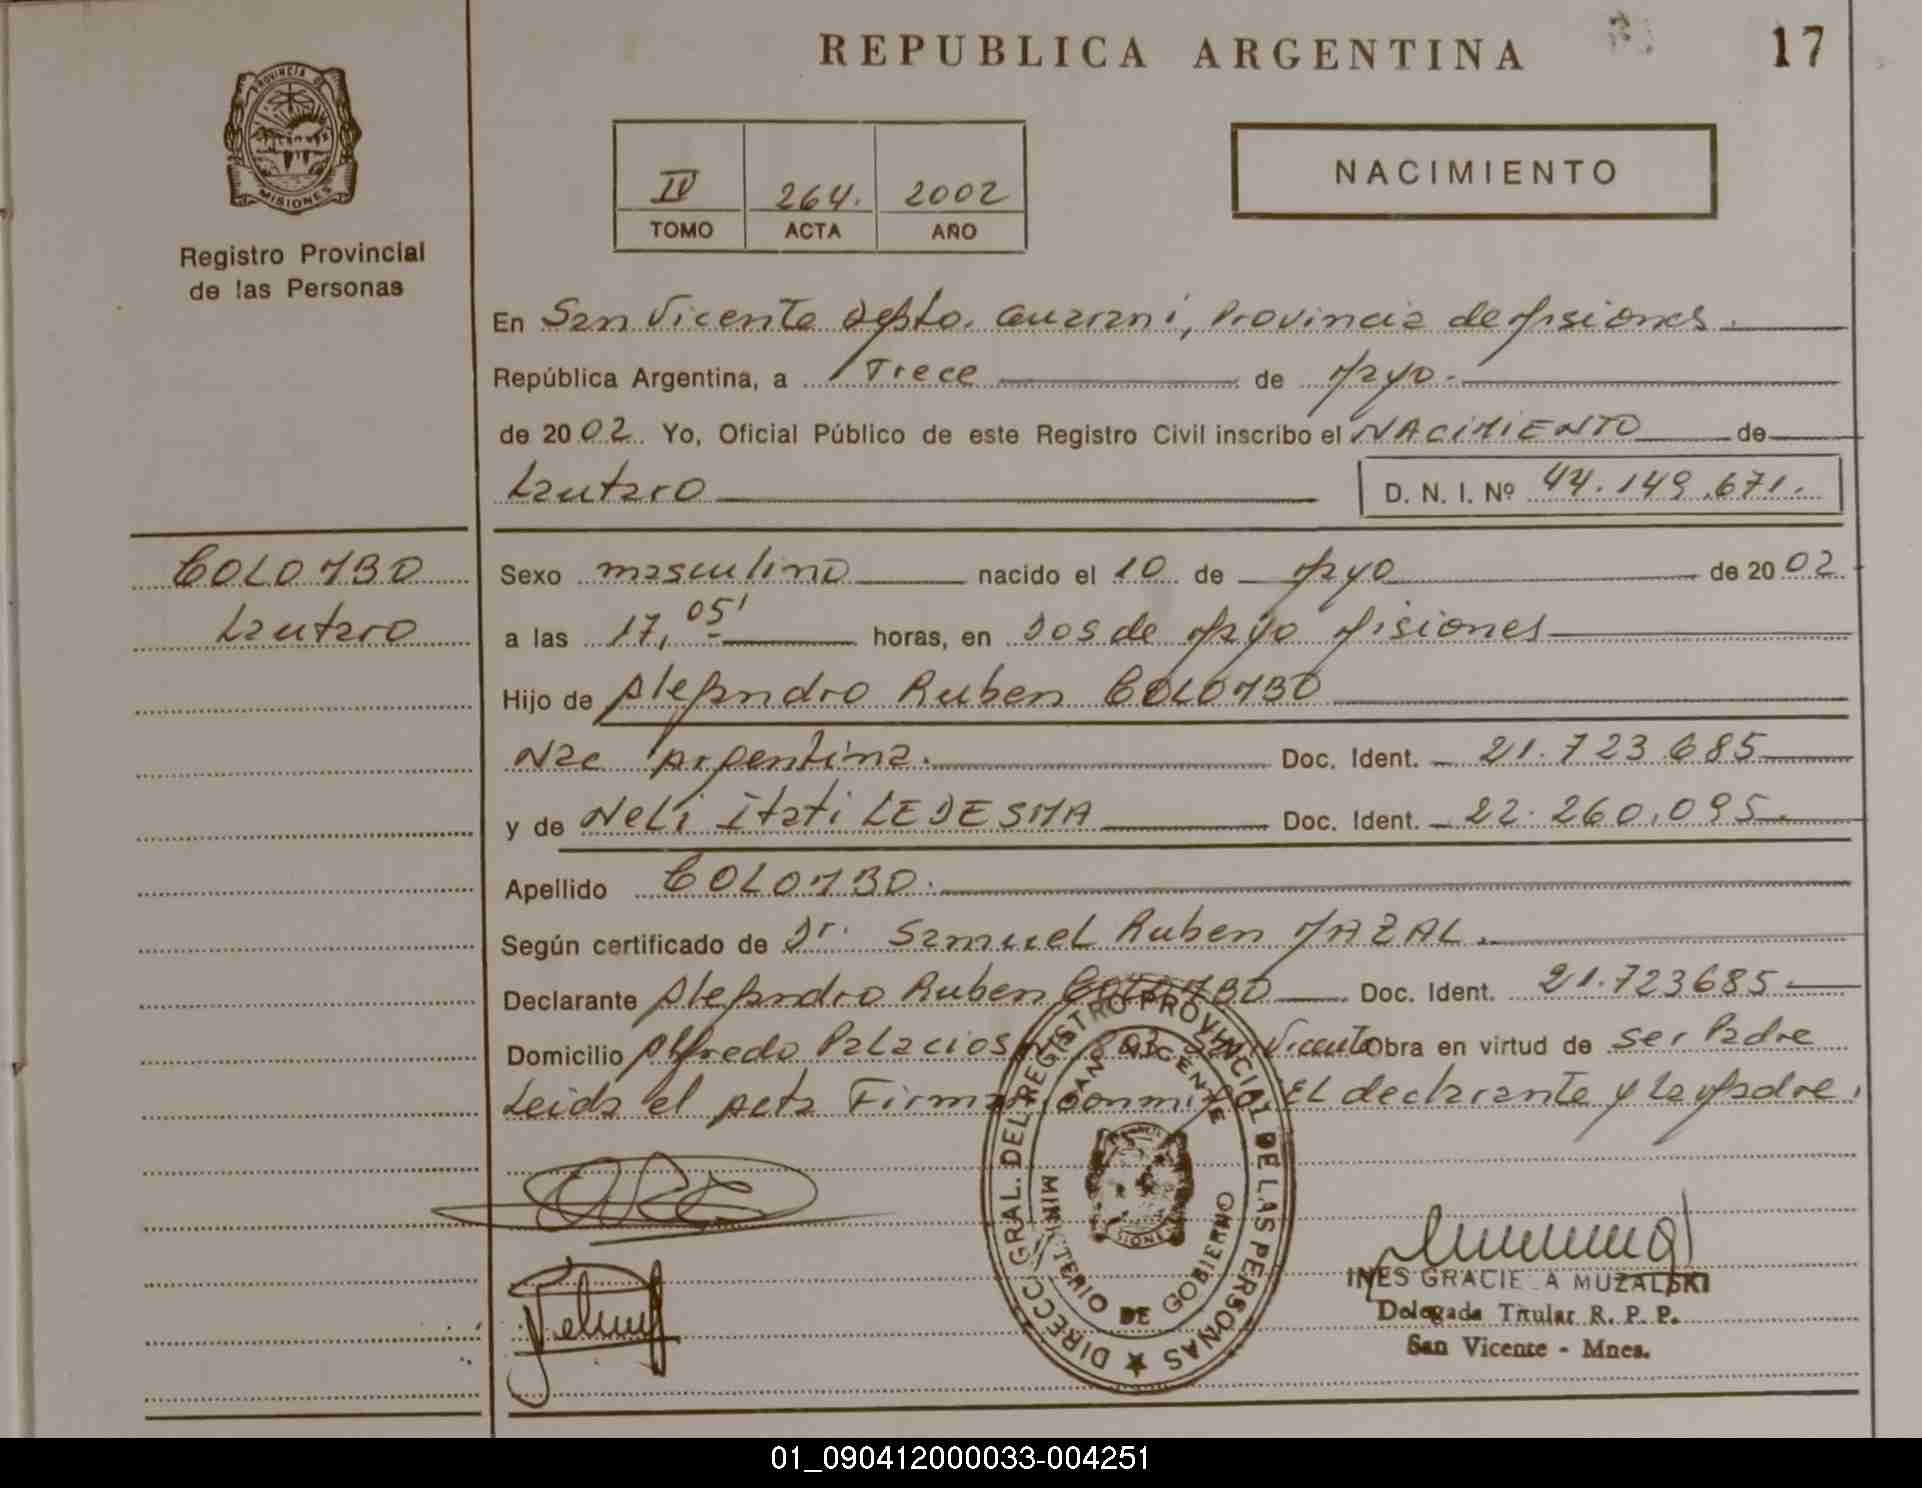 REPUBLICA ARGENTINA
17
PROVINCIA DE MISIONES
Registro Provincial
de las Personas
IV 264. 2002
TOMO ACTA AÑO
NACIMIENTO
En San Vicente Depto. Guarani, Provincia de Misiones.
República Argentina, a Trece de Mayo.
de 2002. Yo, Oficial Público de este Registro Civil inscribo el NACIMIENTO de
Lautaro D. N. I. Nº 44.149.671.
COLOMBO
Lautaro
Sexo masculino nacido el 10 de Mayo de 2002
a las 17,05' horas, en Dos de Mayo Misiones
Hijo de Alejandro Ruben COLOMBO
Nac Argentina. Doc. Ident. 21.723.685
y de Neli Itati LEDESMA Doc. Ident. 22.260.095.
Apellido COLOMBO.
Según certificado de Dr. Samuel Ruben MAZAL.
Declarante Alejandro Ruben COLOMBO Doc. Ident. 21.723685.
Domicilio Alfredo Palacios Nº 803 San Vicente Obra en virtud de ser Padre
Leida el Acta Firman conmigo El declarante y la Madre.
DIRECC. GRAL. DEL REGISTRO PROVINCIAL DE LAS PERSONAS
SAN VICENTE
MINISTERIO DE GOBIERNO
INES GRACIELA MUZALSKI
Delegada Titular R. P. P.
San Vicente - Mnes.
01_090412000033-004251